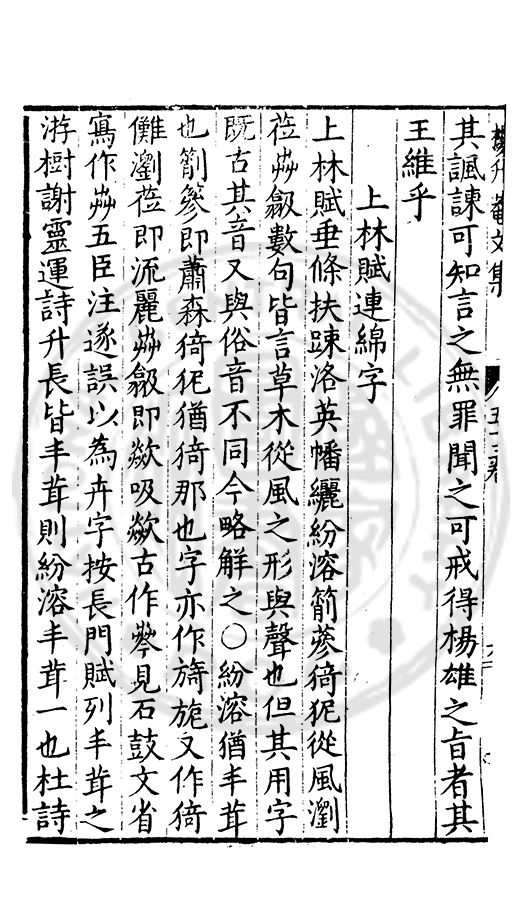 楊升菴文集 五十三卷
其諷諫可知言之無罪聞之可戒得楊雄之旨者其
王維乎
上林賦連綿字
上林賦垂條扶踈洛英幡纚紛溶箾蔘猗狔從風瀏
莅芔歙數句皆言草木從風之形與聲也但其用字
既古其音又與俗音不同今略解之○紛溶猶丰茸
也箾蔘即蕭森猗狔猶猗那也字亦作旖旎又作猗
儺瀏莅即流麗芔歙即歘吸歘古作
見石鼓文省
寫作芔五臣注遂誤以為卉字按長門賦列丰茸之
游樹謝靈運詩升長皆丰茸則紛溶丰茸一也杜詩